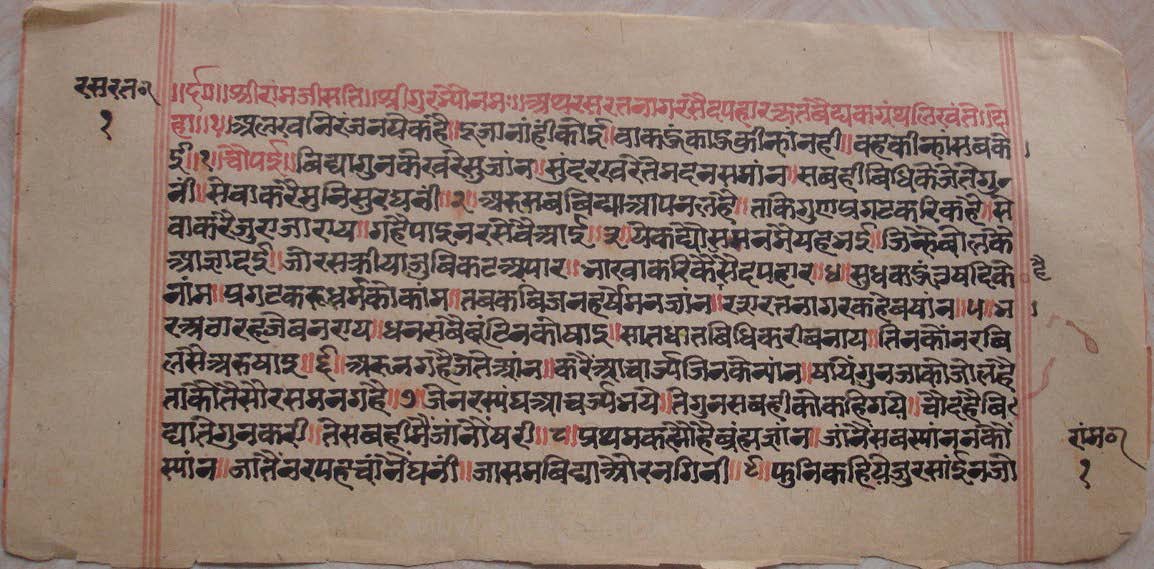 रसरतन
१
॥र्द०॥श्रीरामजीसति॥श्रीगुरभ्योनमः॥अथरसरतनागरसैदपहारकृतंबैद्यकग्रंथलिखंते॥दो
हा॥१॥अलखनिरंजनयेकहै॥दूजानांहीकोई॥वाकऊंकाऊकीन्हांनही॥वहकीन्हांसबको
ई॥१॥चौपई॥बिद्यागुनकेखरेसुजांन॥सुंदरखरेतेमदनसमांन॥सबहीबिधिकेजेतेगु
नी॥सेवाकरैसुनिसुरघनी॥२॥अरुसबबिद्याआपनलहै॥ताकेगुणप्रगटकरिकहै॥से
वाकरैजुराजाराय॥गहैपाइनरसेवैआई॥३॥येकद्यौसमनमैयहभई॥जिन्हैबोलके
आज्ञादई॥जोरसक्रीयाजुबिकटअपार॥भाखाकरिकैसैदपहार॥४॥सुधकाऊंनृषदिको
है
नांम॥प्रगटकरूधर्मकोकांम॥तबकबिजनहर्षेमनज्यांन॥रसरतनागरकहेबषांन॥५॥भ
रअवारहजैबनराय॥धनसंबैबंटिनकौषाइ॥सातधातबिधिकरीबनाय॥तिनकौनरबि
लसैअरुषाइ॥६॥अरुनगहैजेतेआंन॥करैंआचार्ज्यजिनकेमांन॥षयिंगुनजाकोजोलहै
ताकीतैसौरसमनगहै॥७॥जैनरस्यंघआचर्ज्यभये॥तेगुनसबहीकोकहिगये॥चौदहैबि
द्यातेगुनकरी॥तेसबहीमैजांनौषरी॥८॥प्रथमकह्यौहैब्रंह्मज्ञांन॥जांनैसबस्यांनर्नको
रांम
१
स्यांन॥जातैंनरपहचांनैंघनी॥जासमबिद्याऔरनगिनी॥९॥फुनिकहियेजुरसांईनजो